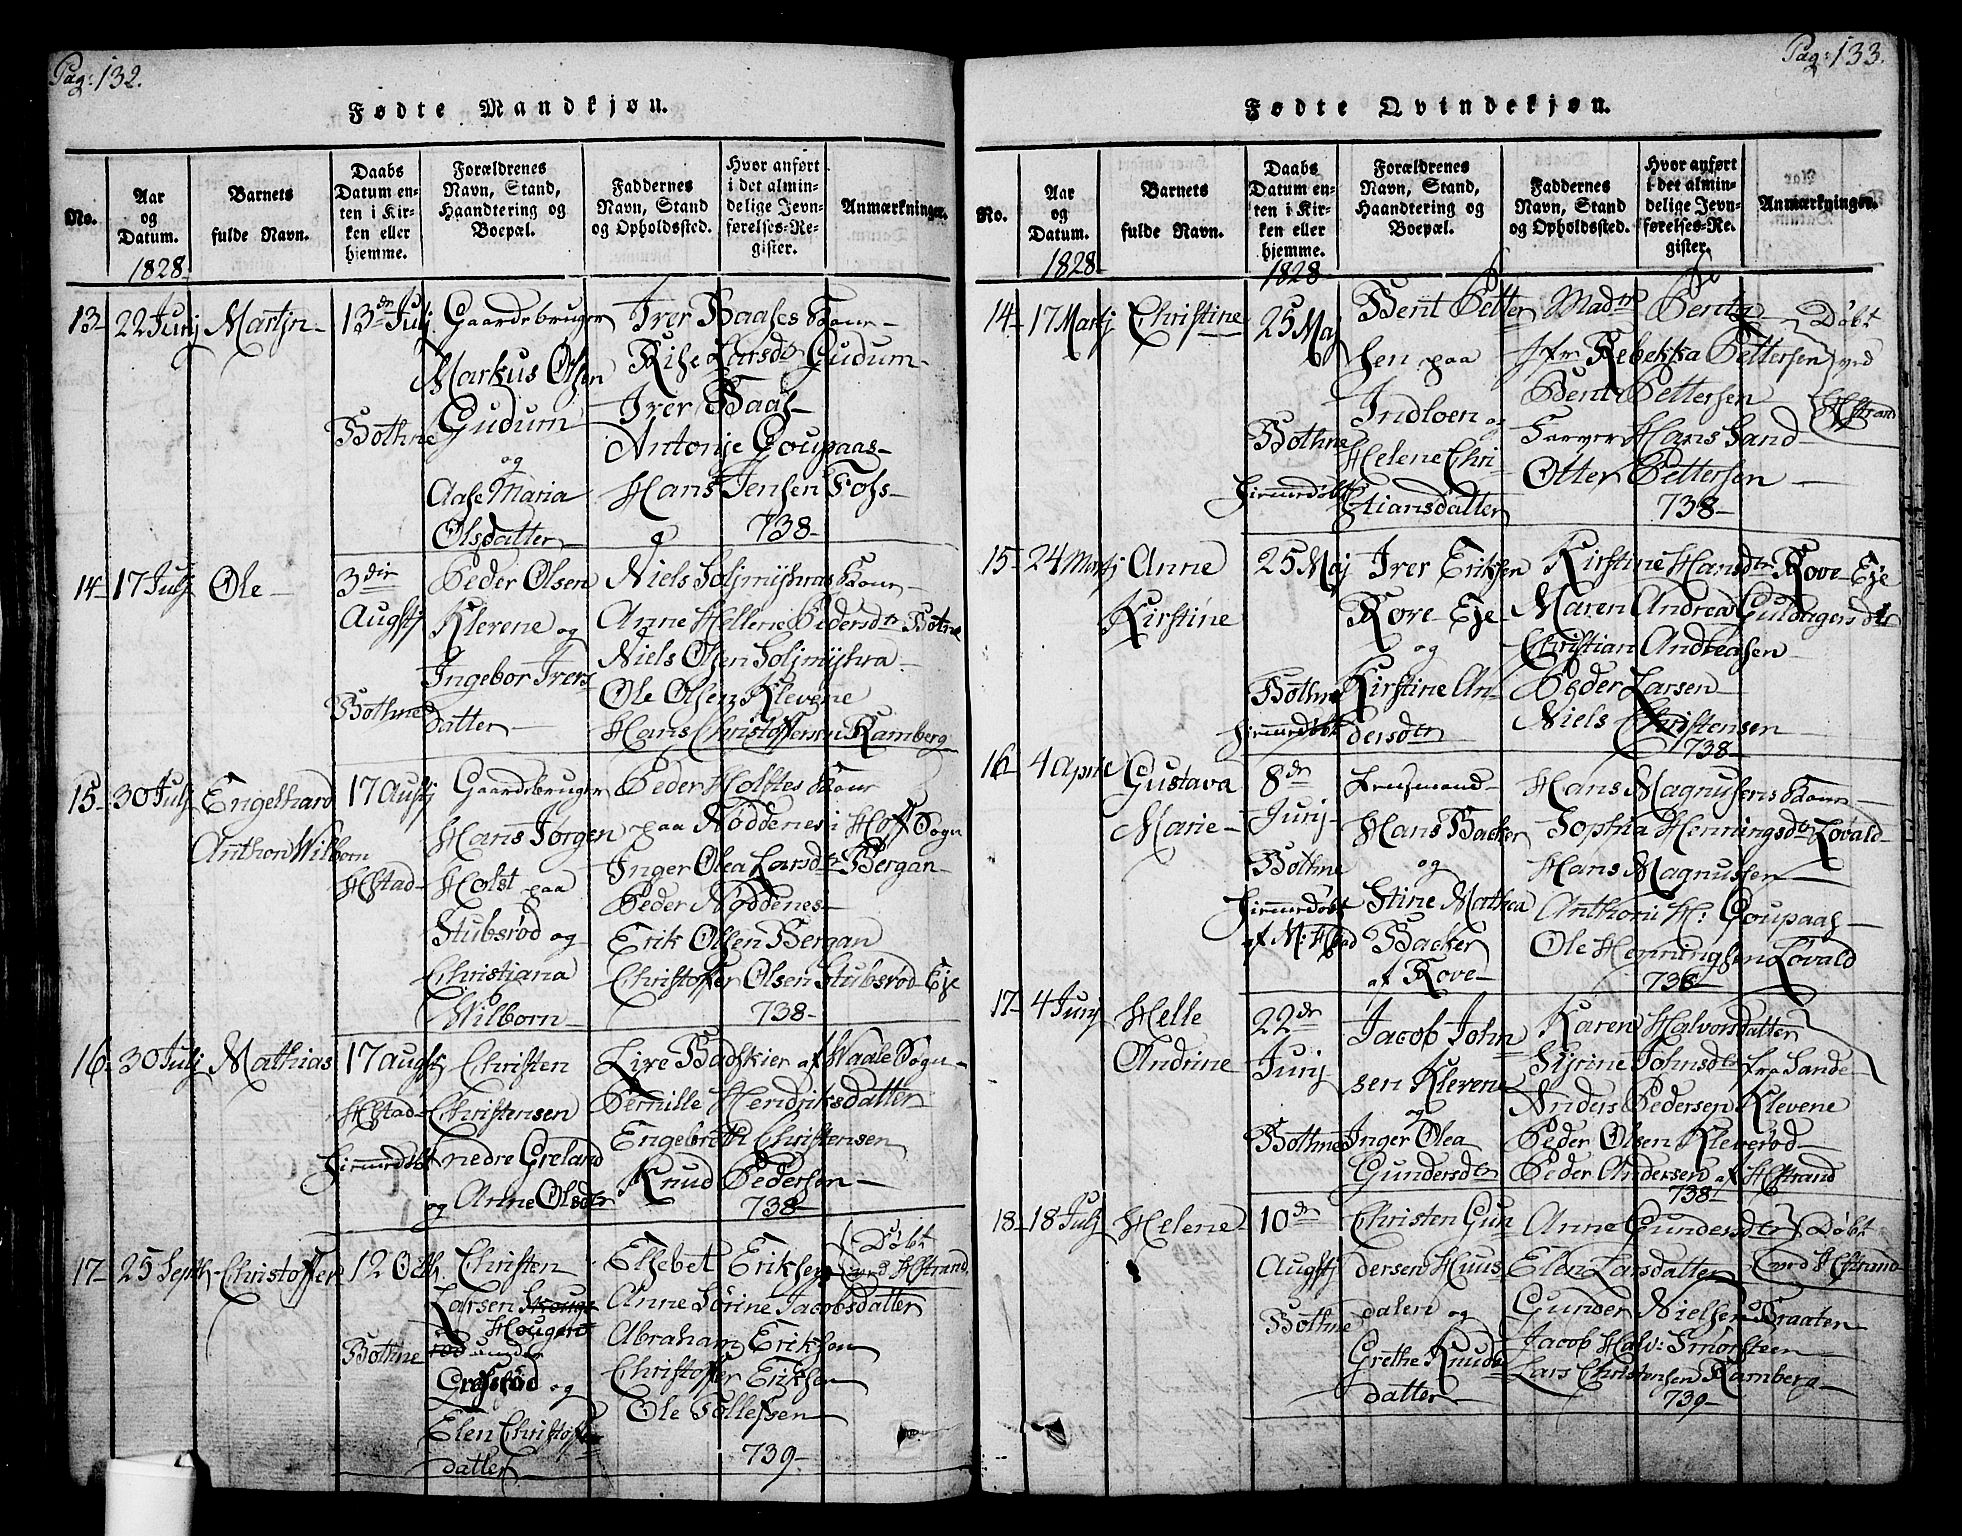 Pag: 132.
Fødte Mandkjøn.
No.
Aar og Datum.
Barnets fulde Navn.
Daabs Datum enten i Kirken eller hjemme.
Forældrenes Navn, Stand, Haandtering og Boepæl.
Faddernes Navn, Stand og Opholdssted.
Hvor anført i det almindelige Jevnførelses-Register.
Anmærkninger.
1828
13 22 Junj Martin
13de Julj
Bothne
Gaardsbruger
Markus Olsen
Gudum
og
Aase Maria
Olsdatter
Iver Baases Kone
Rise Larsdtr Gudum
Iver Baas
Antonje Goupaas
Hans Jensen Foss
738
14 17 Julj Ole
3die
Augstj
Bothne
Peder Olsen
Klevene og
Ingebor Ivers
datter
Niels Soljmyhras Kone
Anne Hellene Pedersdtr Bothne
Niels Olsen Soljmyhra
Ole Olsen Klevene
Hans Christoffersen Ramberg
15 30 Julj Engelhard
Anthon Wilborn
17 Augstj
HStad
Gaardsbruger
Hans Jørgen
Holst paa
Stubsrød og
Christiana
Wilborn
Peder Holstes Kone
paa Nøddenes i Hoff Sogn
Inger Olea Larsdtr Bergan
Peder Nøddenes
Erik Olsen Bergan
Christoffer Olsen Stubsrød Eje
738
16 30 Julj Mathias
17 Augstj
HStad
Hiemmedøbt
Christen
Christensen
nedre Greland
og Anne Olsdtr
Live Badskier af Waale Sogn
Pernille Hendriksdatter
Engebreth Christensen
Knud Pedersen
738
17 25 Septbr Christoffer
12 Octb.
Bothne
Christen
Larsen
Hougen
under
Gresrød og
Elen Christoffer
datter
Elsebet Eriksen
Anne Sørine Jacobsdatter
Abraham Eriksen
Christoffer Eriksen
Ole Tollefsen
739
Døbt
ved HStrand
Pag: 133.
Fødte Qvindekjøn.
No.
Aar og Datum.
Barnets fulde Navn.
Daabs Datum enten i Kirken eller hjemme.
Forældrenes Navn, Stand, Haandtering og Boepæl.
Faddernes Navn, Stand og Opholdssted.
Hvor anført i det almindelige Jevnførelses-Register.
Anmærkninger.
1828
1828
14 17 Martj Christine
25 Maj
Bothne
Hiemmedøbt
Bent Petter
sen paa
Indloen og
Helene Chri
stiansdatter
Madm Bentz
Jfr Rebekka Pettersen
Bent Pettersen
Farver Hans Sand
Otter Pettersen
738
Døbt
ved
HStrand
15 24 Martj Anne
Kirstine
25 Maj
Bothne
Hiemmedøbt
Iver Eriksen
Rove Eje
og
Kirstine An
dersdtr
Kirstine Hansdtr Rove Eje
Maren Andrea Guldagersdtr
Christian Andreasen
Peder Larsen
Niels Christensen
738
16 4 Aprile Gustava
Marie
8de
Junj
Bothne
Hiemmedøbt
Huusmand
Hans Backer
og
Stine Mathea
Backer
af Rove
Hans Magnusens Kone
Sophia Henningsdtr Løvald
Hans Magnussen
Anthoni H: Goupaas
Ole Henningsen Løvald
738
17 4 Junj Helle
Andrine
22de
Junj
Bothne
Jacob John
sen Klevene
og
Inger Olea
Gundersdtr
Karen Halvorsdatter
Syrine Johnsdtr fra Sande
Anders Pedersen Klevene
Peder Olsen Kleverød
Peder Andersen af HStrand
738
18 18 Julj Helene
10de
Augstj
Bothne
Christen Gun
dersen Huus
dalen og
Grethe Knuds
datter
Anne Gundersdtr
Elen Larsdatter
Gunder Nielsen Braaten
Jacob Halv: Smørsteen
Lars Christensen Ramberg
739
Døbt
ved HStrand